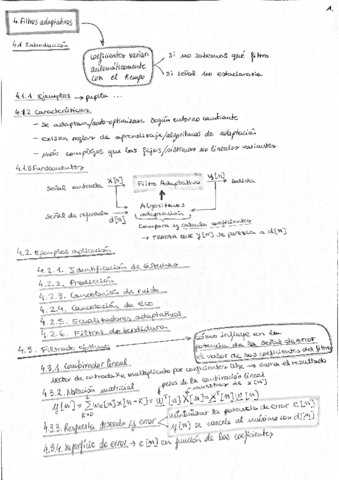 1.
4. Filtros adaptativos
4.1 Introducción
coeficientes varían
automáticamente
con el tiempo
si no sabemos qué filtro
si señal no estacionaria
4.1.1 Ejemplos → pupila ...
4.1.2 Características
- Se adaptan/auto-optimizan según entorno cambiante
- existen reglas de aprendizaje/algoritmos de adaptación
- más complejos que los fijos/sistemas no lineales variantes
4.1.3 Fundamentos
señal entrada x[n] → Filtro Adaptativo → y[n] salida
señal de referencia d[n] → Algoritmos
adaptación
compara y calcula coeficientes
→ tratar que y[n] se parezca a d[n]
4.2. Ejemplos aplicación
4.2.1. Identificación de sistemas
4.2.2. Predicción
4.2.3. Cancelación de ruido
4.2.4. Cancelación de eco
4.2.5. Ecualizadores adaptativos
4.2.6. Filtros de hendidura
4.3. Filtrado óptimo
cómo influye en la
potencia de la señal de error
el valor de los coeficientes del filtro
4.3.1 Combinador lineal
vector de entrada Xk multiplicado por coeficientes Wk → suma el resultado
4.3.2. Notación matricial
pesos de la combinación lineal
muestras de x[n]
y[n] = Σ wk[n] x[n-k] = W^T[n] X[n] = X^T[n] W[n]
k=0
L
4.3.3. Respuesta deseada y error
minimizar la potencia de error e[n]
y[n] se acerque al máximo con d[n]
4.3.4. Superficie de error → e[n] en función de los coeficientes